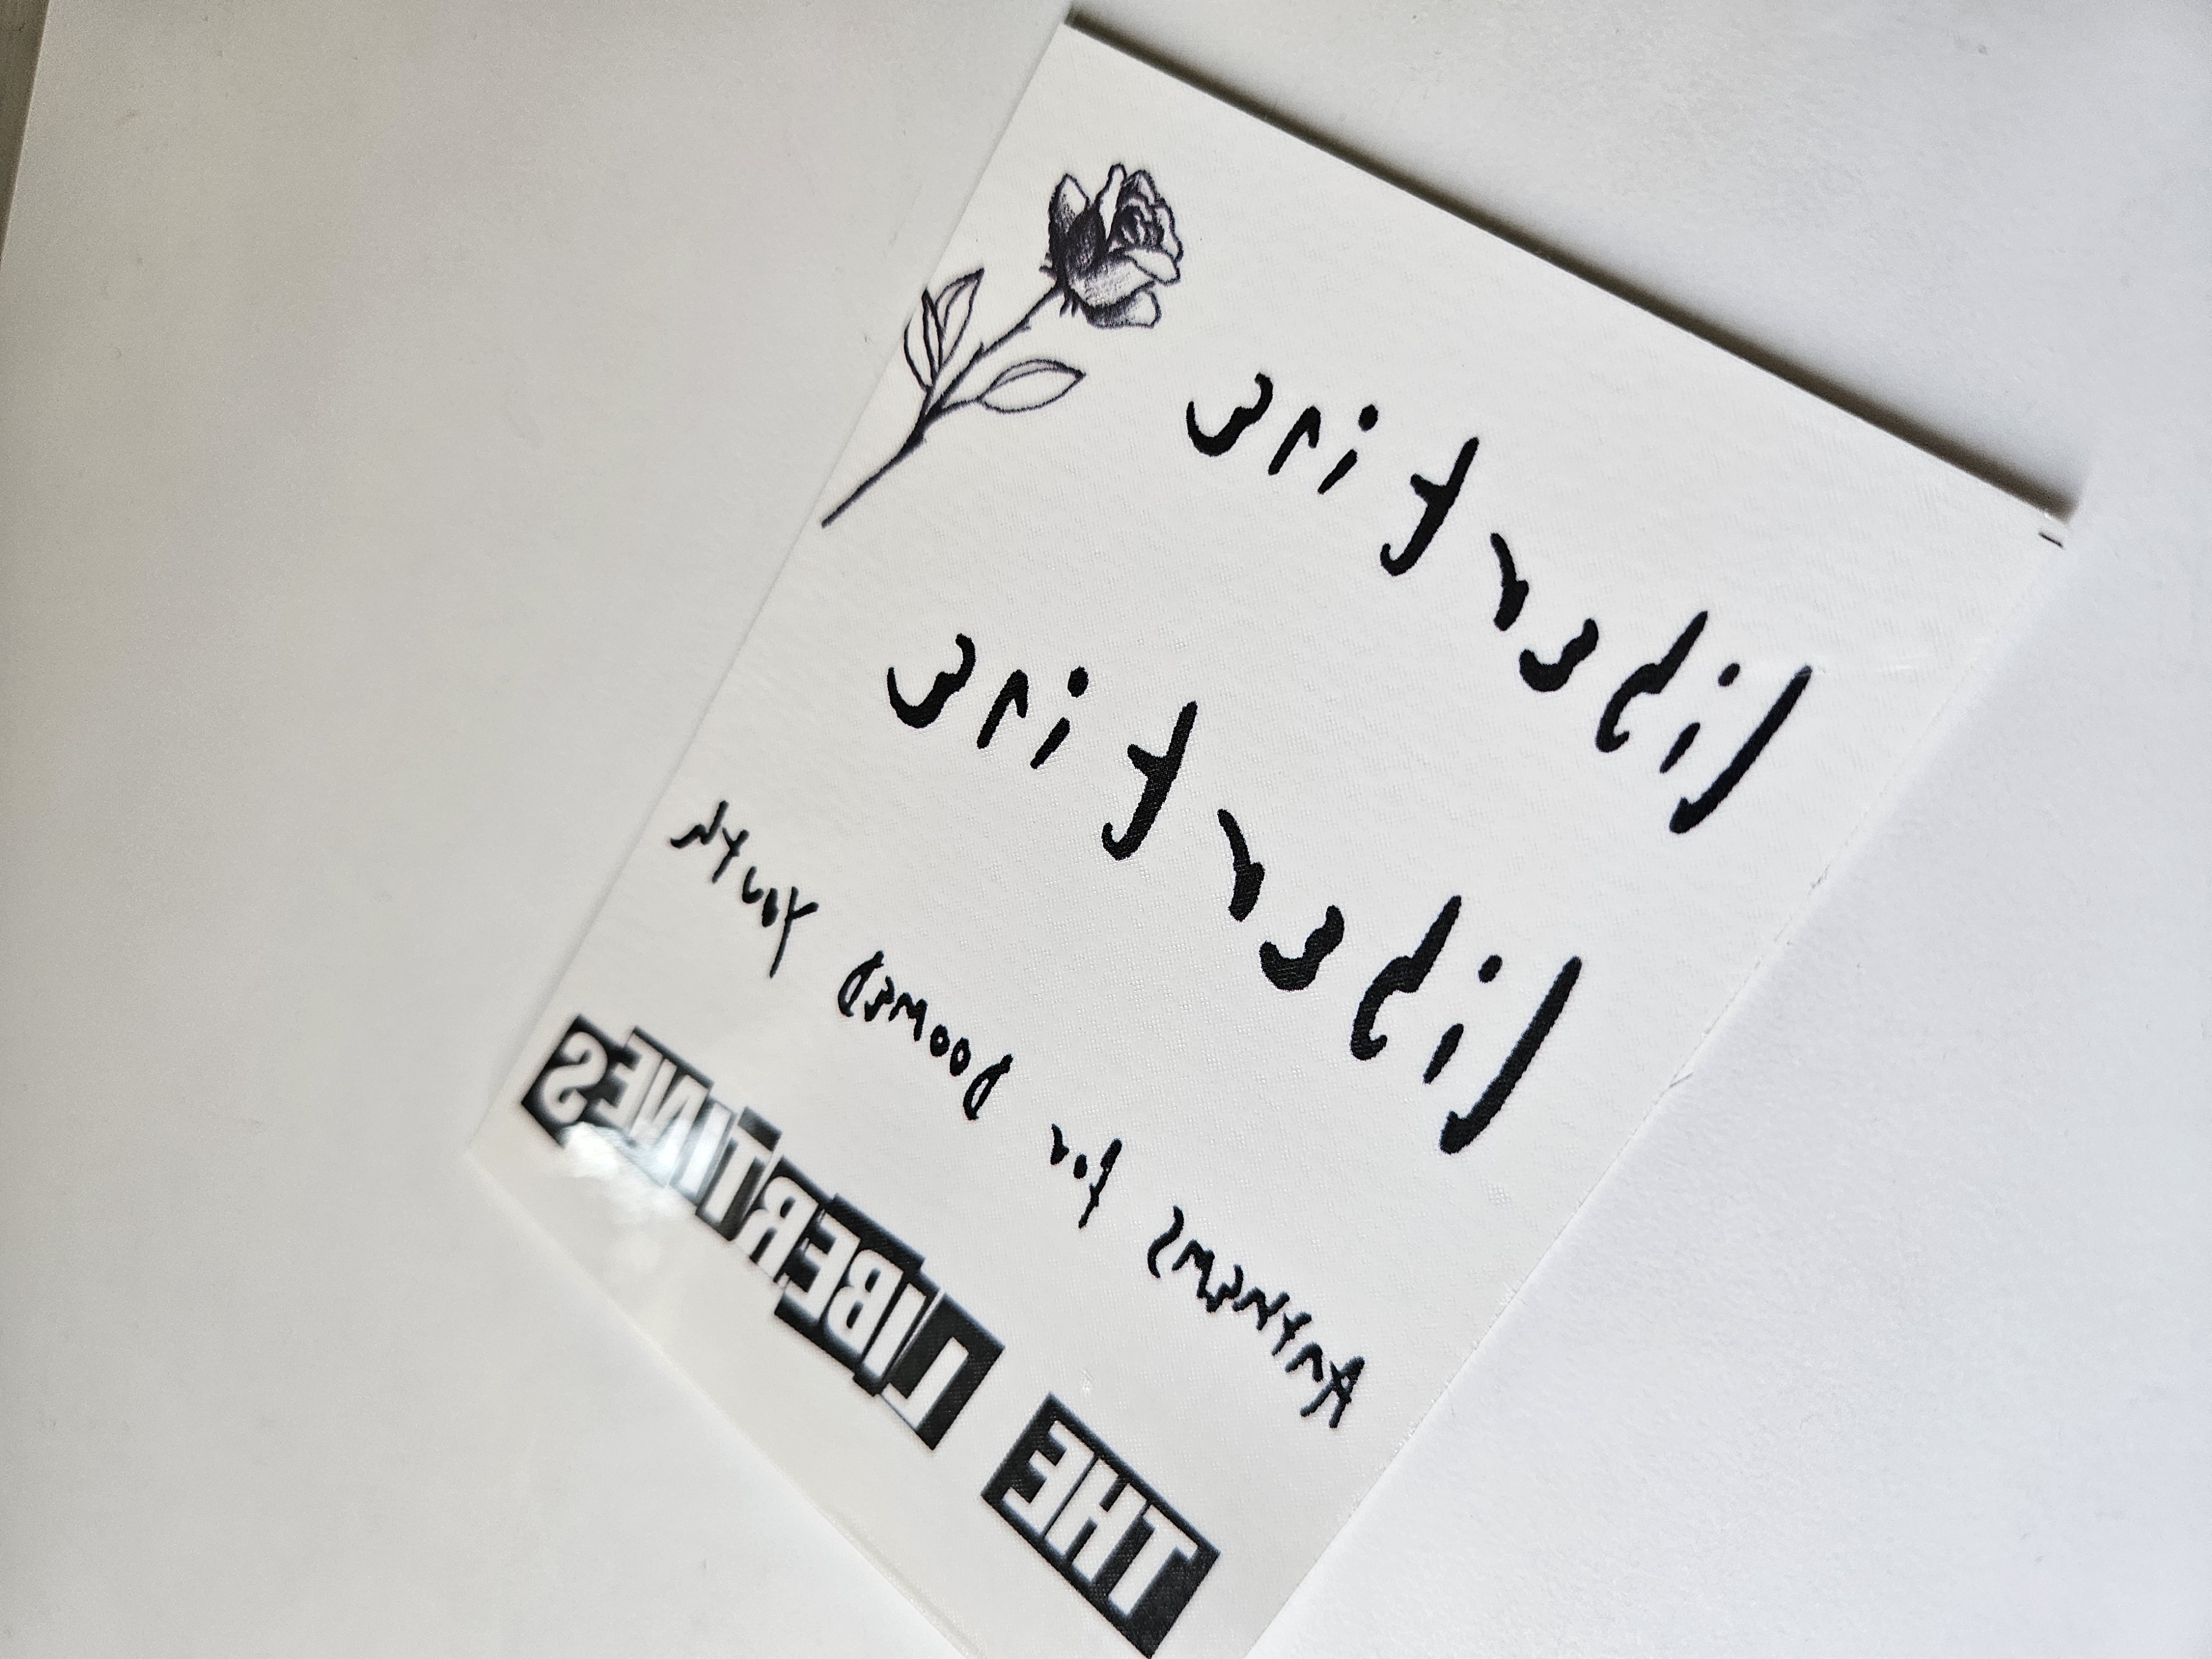 Libertine
Libertine
Anthems for Doomed Youth
THE LIBERTINES